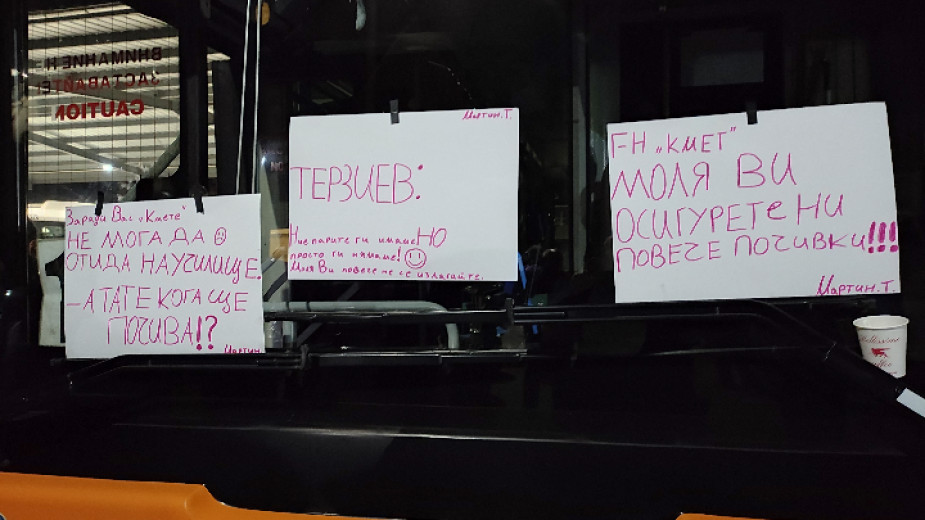 ВНИМАНИЕ Н
ЗАСТАВАЙТЕ
CAUTION
Заради Вас „Кмете"
НЕ МОГА ДА ☹
ОТИДА НА УЧИЛИЩЕ.
– А ТАТЕ КОГА ЩЕ
ПОЧИВА!?
Мартин
Мартин.Т.
ТЕРЗИЕВ:
Ние парите ги имаме НО
просто ги нямаме! ☺
Моля Ви повече не се излагайте.
Г-Н „КМЕТ"
МОЛЯ ВИ
ОСИГУРЕТЕ НИ
ПОВЕЧЕ ПОЧИВКИ!!!
Мартин.Т.